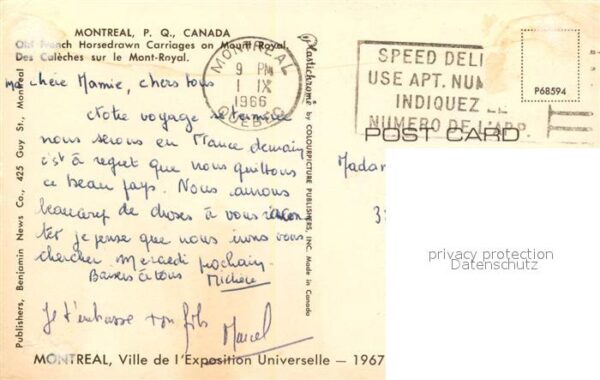 MONTREAL, P. Q., CANADA
Old French Horsedrawn Carriages on Mount Royal.
Des Calèches sur le Mont-Royal.
ma chère Mamie, chers tous
Notre voyage se termine
nous serons en France demain
c'est à regret que nous quittons
ce beau pays. Nous aurons
beaucoup de choses à vous racon
ter je pense que nous irons vous
chercher Mercredi prochain.
Baisers à tous
Michèle
Je t'embrasse ton fils
Marcel
MONTREAL, Ville de l'Exposition Universelle — 1967
Publishers, Benjamin News Co., 425 Guy St., Montreal
Plastichrome by COLOURPICTURE PUBLISHERS, INC. Made in Canada
MONTREAL
9 PM
1 IX
1966
QUEBEC
SPEED DELI
USE APT. NUM
INDIQUEZ LE
NUMERO DE L'APP.
P68594
POST CARD
Madam
3
privacy protection
Datenschutz